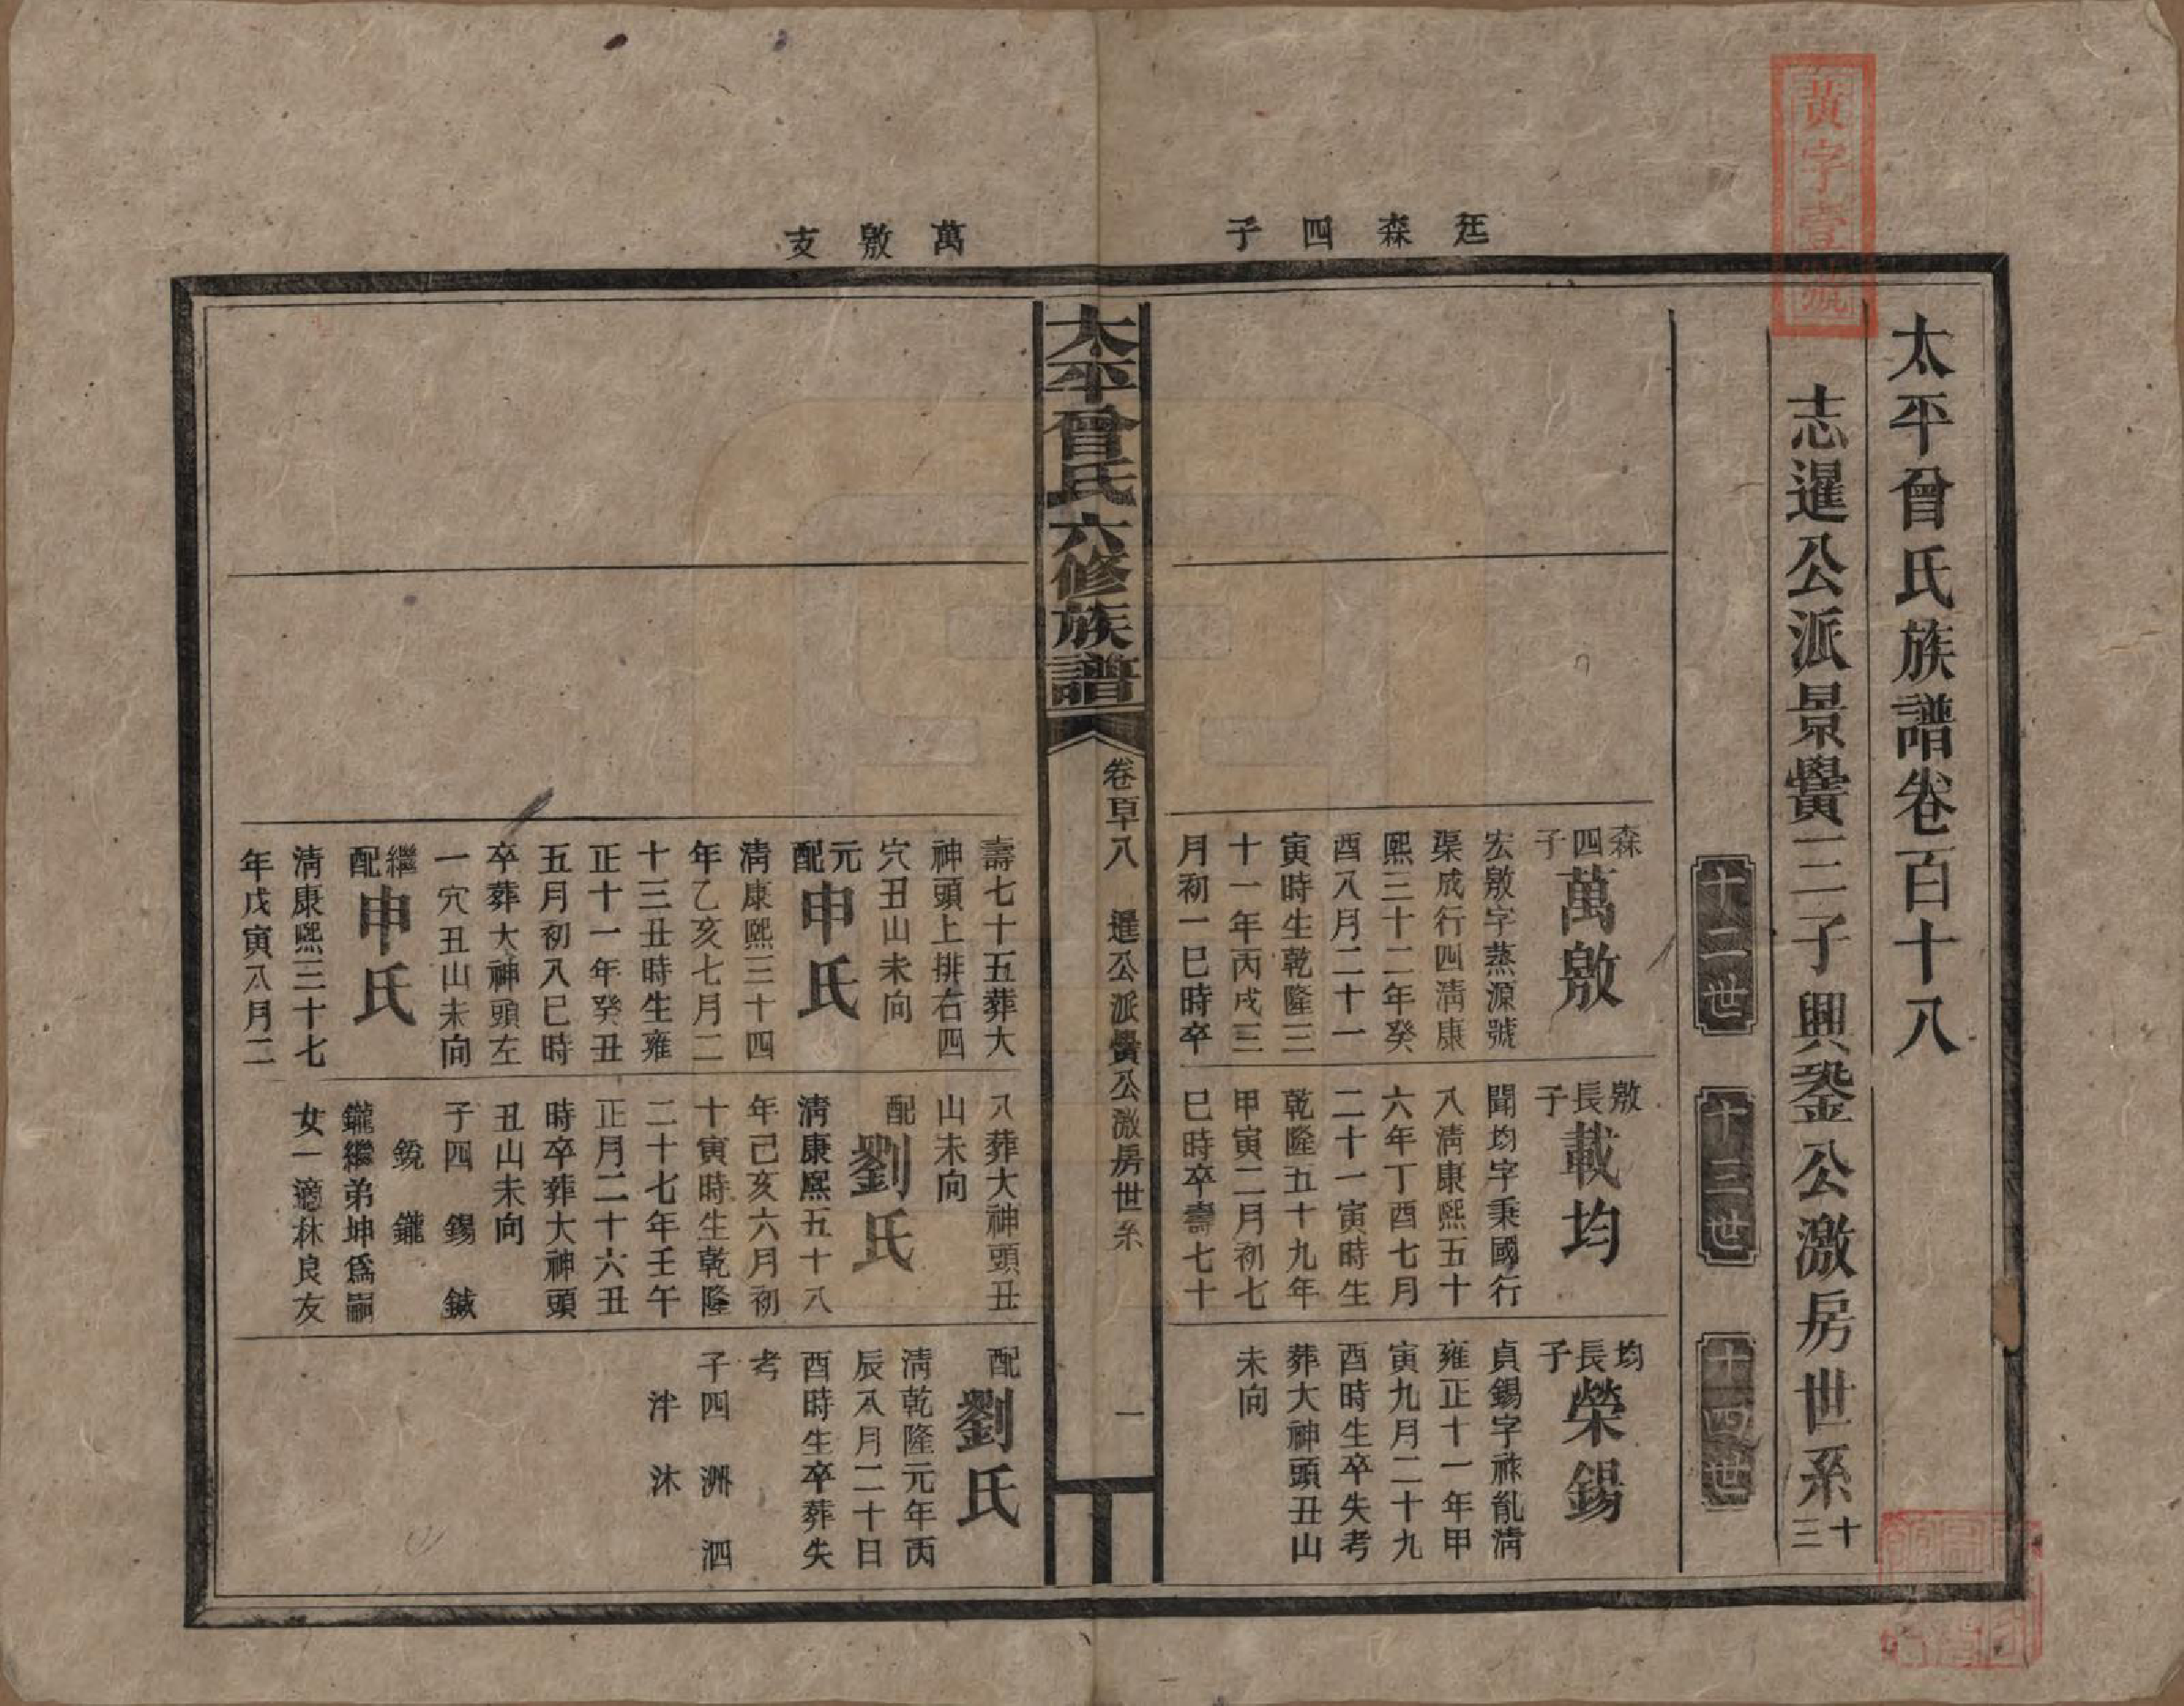 黃字壹號
廷森四子
萬敫支
太平曾氏族譜卷百十八
志暹公派景黌三子興鋆公激房世系十三
十二世
十三世
十四世
森四子
萬敫
宏敫字蒸源號
渠成行四淸康
熙三十二年癸
酉八月二十一
寅時生乾隆三
十一年丙戌三
月初一巳時卒
敫長子
載均
聞均字秉國行
八淸康熙五十
六年丁酉七月
二十一寅時生
乾隆五十九年
甲寅二月初七
巳時卒壽七十
均長子
榮錫
貞錫字祿胤淸
雍正十一年甲
寅九月二十九
酉時生卒失考
葬大神頭丑山
未向
太平曾氏六修族譜
卷百十八
暹公派黌公激房世系
一
壽七十五葬大
神頭上排右四
穴丑山未向
元配申氏
淸康熙三十四
年乙亥七月二
十三丑時生雍
正十一年癸丑
五月初八巳時
卒葬大神頭左
一穴丑山未向
繼配申氏
淸康熙三十七
年戊寅八月二
八葬大神頭丑
山未向
配劉氏
淸康熙五十八
年己亥六月初
十寅時生乾隆
二十七年壬午
正月二十六丑
時卒葬大神頭
丑山未向
子四 錫 鍼
銳 鑨
鑨繼弟坤爲嗣
女一適林良友
配劉氏
淸乾隆元年丙
辰八月二十日
酉時生卒葬失
考
子四 洲 泗
泮 沐